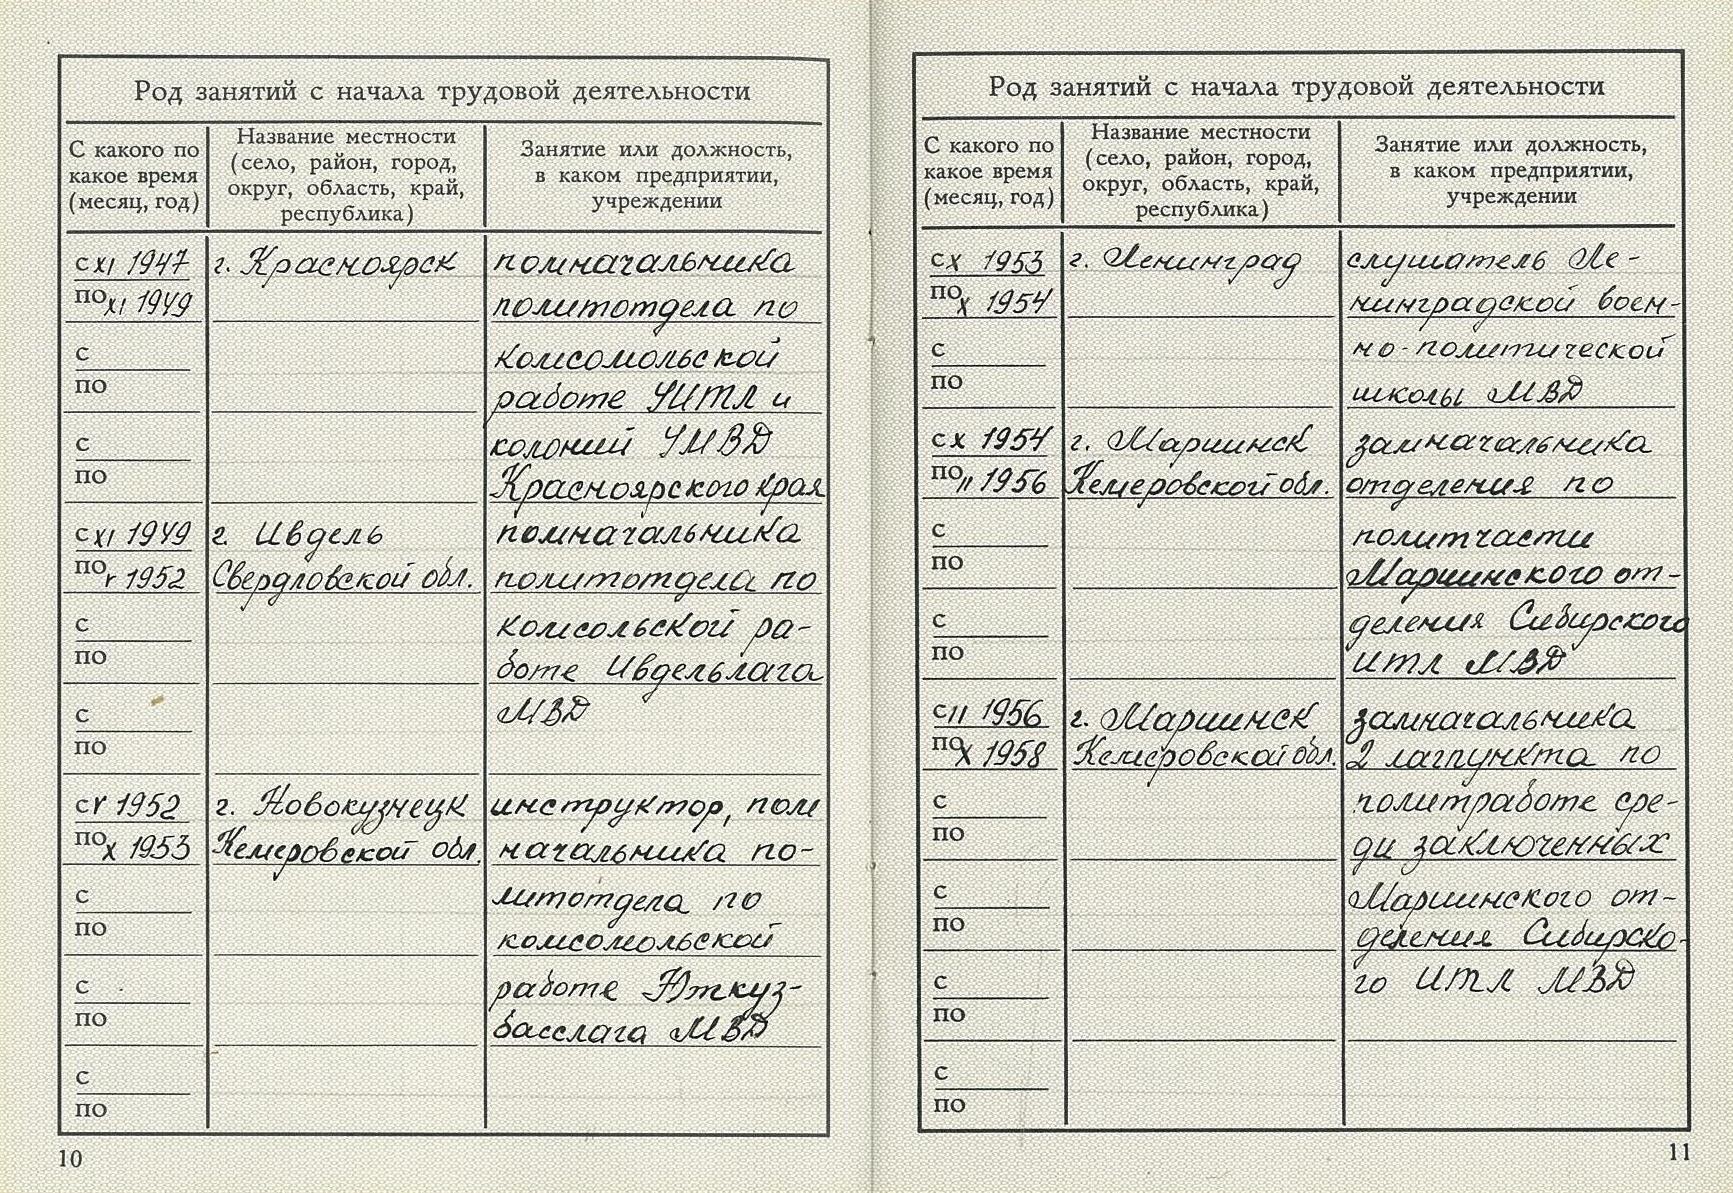 Род занятий с начала трудовой деятельности
С какого по какое время (месяц, год)
Название местности (село, район, город, округ, область, край, республика)
Занятие или должность, в каком предприятии, учреждении
с XI 1947 г. Красноярск помначальника
по XI 1949 политотдела по
с комсомольской
по работе УИТЛ и
с колоний УМВД
по Красноярского края
с XI 1949 г. Ивдель помначальника
по V 1952 Свердловской обл. политотдела по
с комсольской ра-
по боте Ивдельлага
с МВД
по
с V 1952 г. Новокузнецк инструктор, пом
по X 1953 Кемеровской обл. начальника по-
с литотдела по
по комсомольской
с работе Южкуз-
по басслага МВД
с
по
10
Род занятий с начала трудовой деятельности
С какого по какое время (месяц, год)
Название местности (село, район, город, округ, область, край, республика)
Занятие или должность, в каком предприятии, учреждении
с X 1953 г. Ленинград слушатель Ле-
по X 1954 нинградской воен-
с но-политической
по школы МВД
с X 1954 г. Мариинск замначальника
по II 1956 Кемеровской обл. отделения по
с политчасти
по Мариинского от-
с деления Сибирского
по ИТЛ МВД
с II 1956 г. Мариинск замначальника
по X 1958 Кемеровской обл. 2 лагпункта по
с политработе сре-
по ди заключенных
с Мариинского от-
по деления Сибирско-
с го ИТЛ МВД
по
с
по
11